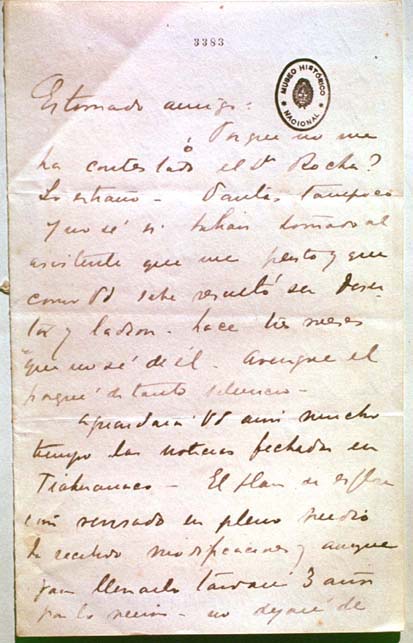 3383
MUSEO HISTÓRICO NACIONAL
Estimado amigo:
¿Porque no me
ha contestado el Dr Rocha?
Lo extraño - Dantas tampoco
y no sé si habrán tomado al
asistente que me prestó y que
como Vd sabe resultó ser deser-
tor y ladron - hace tres meses
que no sé de él. Averigüe el
porqué de tanto silencio -
Aguardará Vd aun mucho
tiempo las noticias fechadas en
Tiahuanaco - El plan de explora
cion pensado en pleno
ha recibido modificaciones y aunque
para llenarlo tardaré 3 años
por lo menos - no dejaré de